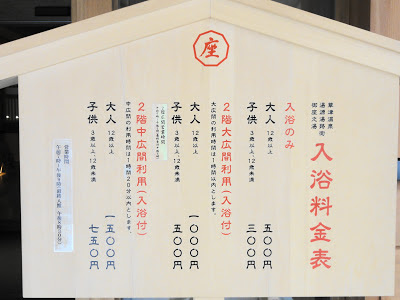 座
草津温泉
湯源湯路街
御座之湯
入浴料金表
入浴のみ
大人 12歳以上 五〇〇円
子供 3歳以上,12歳未満 三〇〇円
2階大広間利用(入浴付)
大広間の利用時間は1時間以内とします。
大人 12歳以上 一〇〇〇円
子供 3歳以上,12歳未満 五〇〇円
2階中広間利用(入浴付)
中広間の利用時間は1時間20分以内とします。
大人 12歳以上 一五〇〇円
子供 3歳以上,12歳未満 七五〇円
営業時間